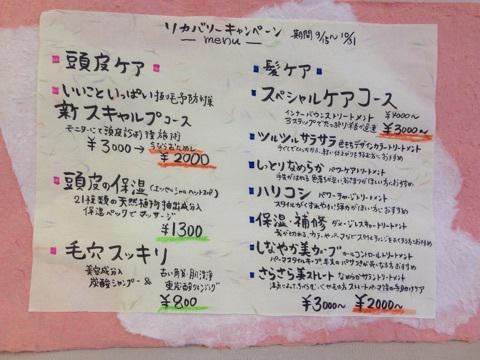 リカバリーキャンペーン
— menu —
期間 9/15〜10/31
頭皮ケア
いいこといっぱい 抜毛予防対策
新スキャルプコース
モニターにて頭皮診断 施術
¥3000→ 今ならおためし
¥2000
頭皮の保湿(エッセンシャルヘッドスパ)
21種類の天然植物抽出成分
保湿パックでマッサージ
¥1300
毛穴スッキリ
美容成分 古い角質・肌洗浄
炭酸シャンプー & 炭酸クレンジング
¥800
髪ケア
スペシャルケアコース
インナーバウンストリートメント
3ステップで
¥4000〜
¥3000〜
ツルツルサラサラ 色もちデザインカラートリートメント
しっとりなめらか パワーケアトリートメント
ハリコシ パワーチャージトリートメント
保湿・補修 ダメージレスキュートリートメント
しなやか美ウェーブ カールコントロールトリートメント
さらさら美ストレート なめらかサラントリートメント
¥3000〜 ¥2000〜